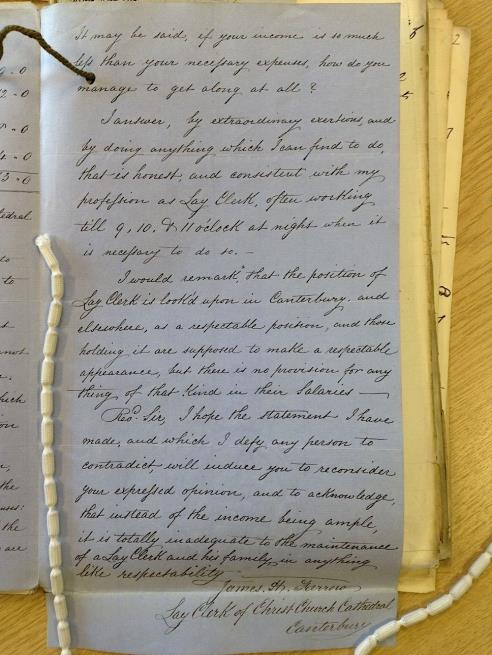 It may be said, if your income is so much
less than your necessary expenses, how do you
manage to get along at all?
I answer, by extraordinary exertions, and
by doing anything which I can find to do,
that is honest, and consistent with my
profession as Lay Clerk, often working
till 9, 10, & 11 o'clock at night when it
is necessary to do so. —
I would remark, that the position of
Lay Clerk is look'd upon in Canterbury, and
elsewhere, as a respectable position, and those
holding it are supposed to make a respectable
appearance, but there is no provision for any
thing of that Kind in their Salaries —
Revd. Sir, I hope the statement I have
made, and which I defy any person to
contradict will induce you to reconsider
your expressed opinion, and to acknowledge,
that instead of the income being ample,
it is totally inadequate to the maintenance
of a Lay Clerk and his family, in anything
like respectability
James. Farrow
Lay Clerk of Christ Church Cathedral
Canterbury